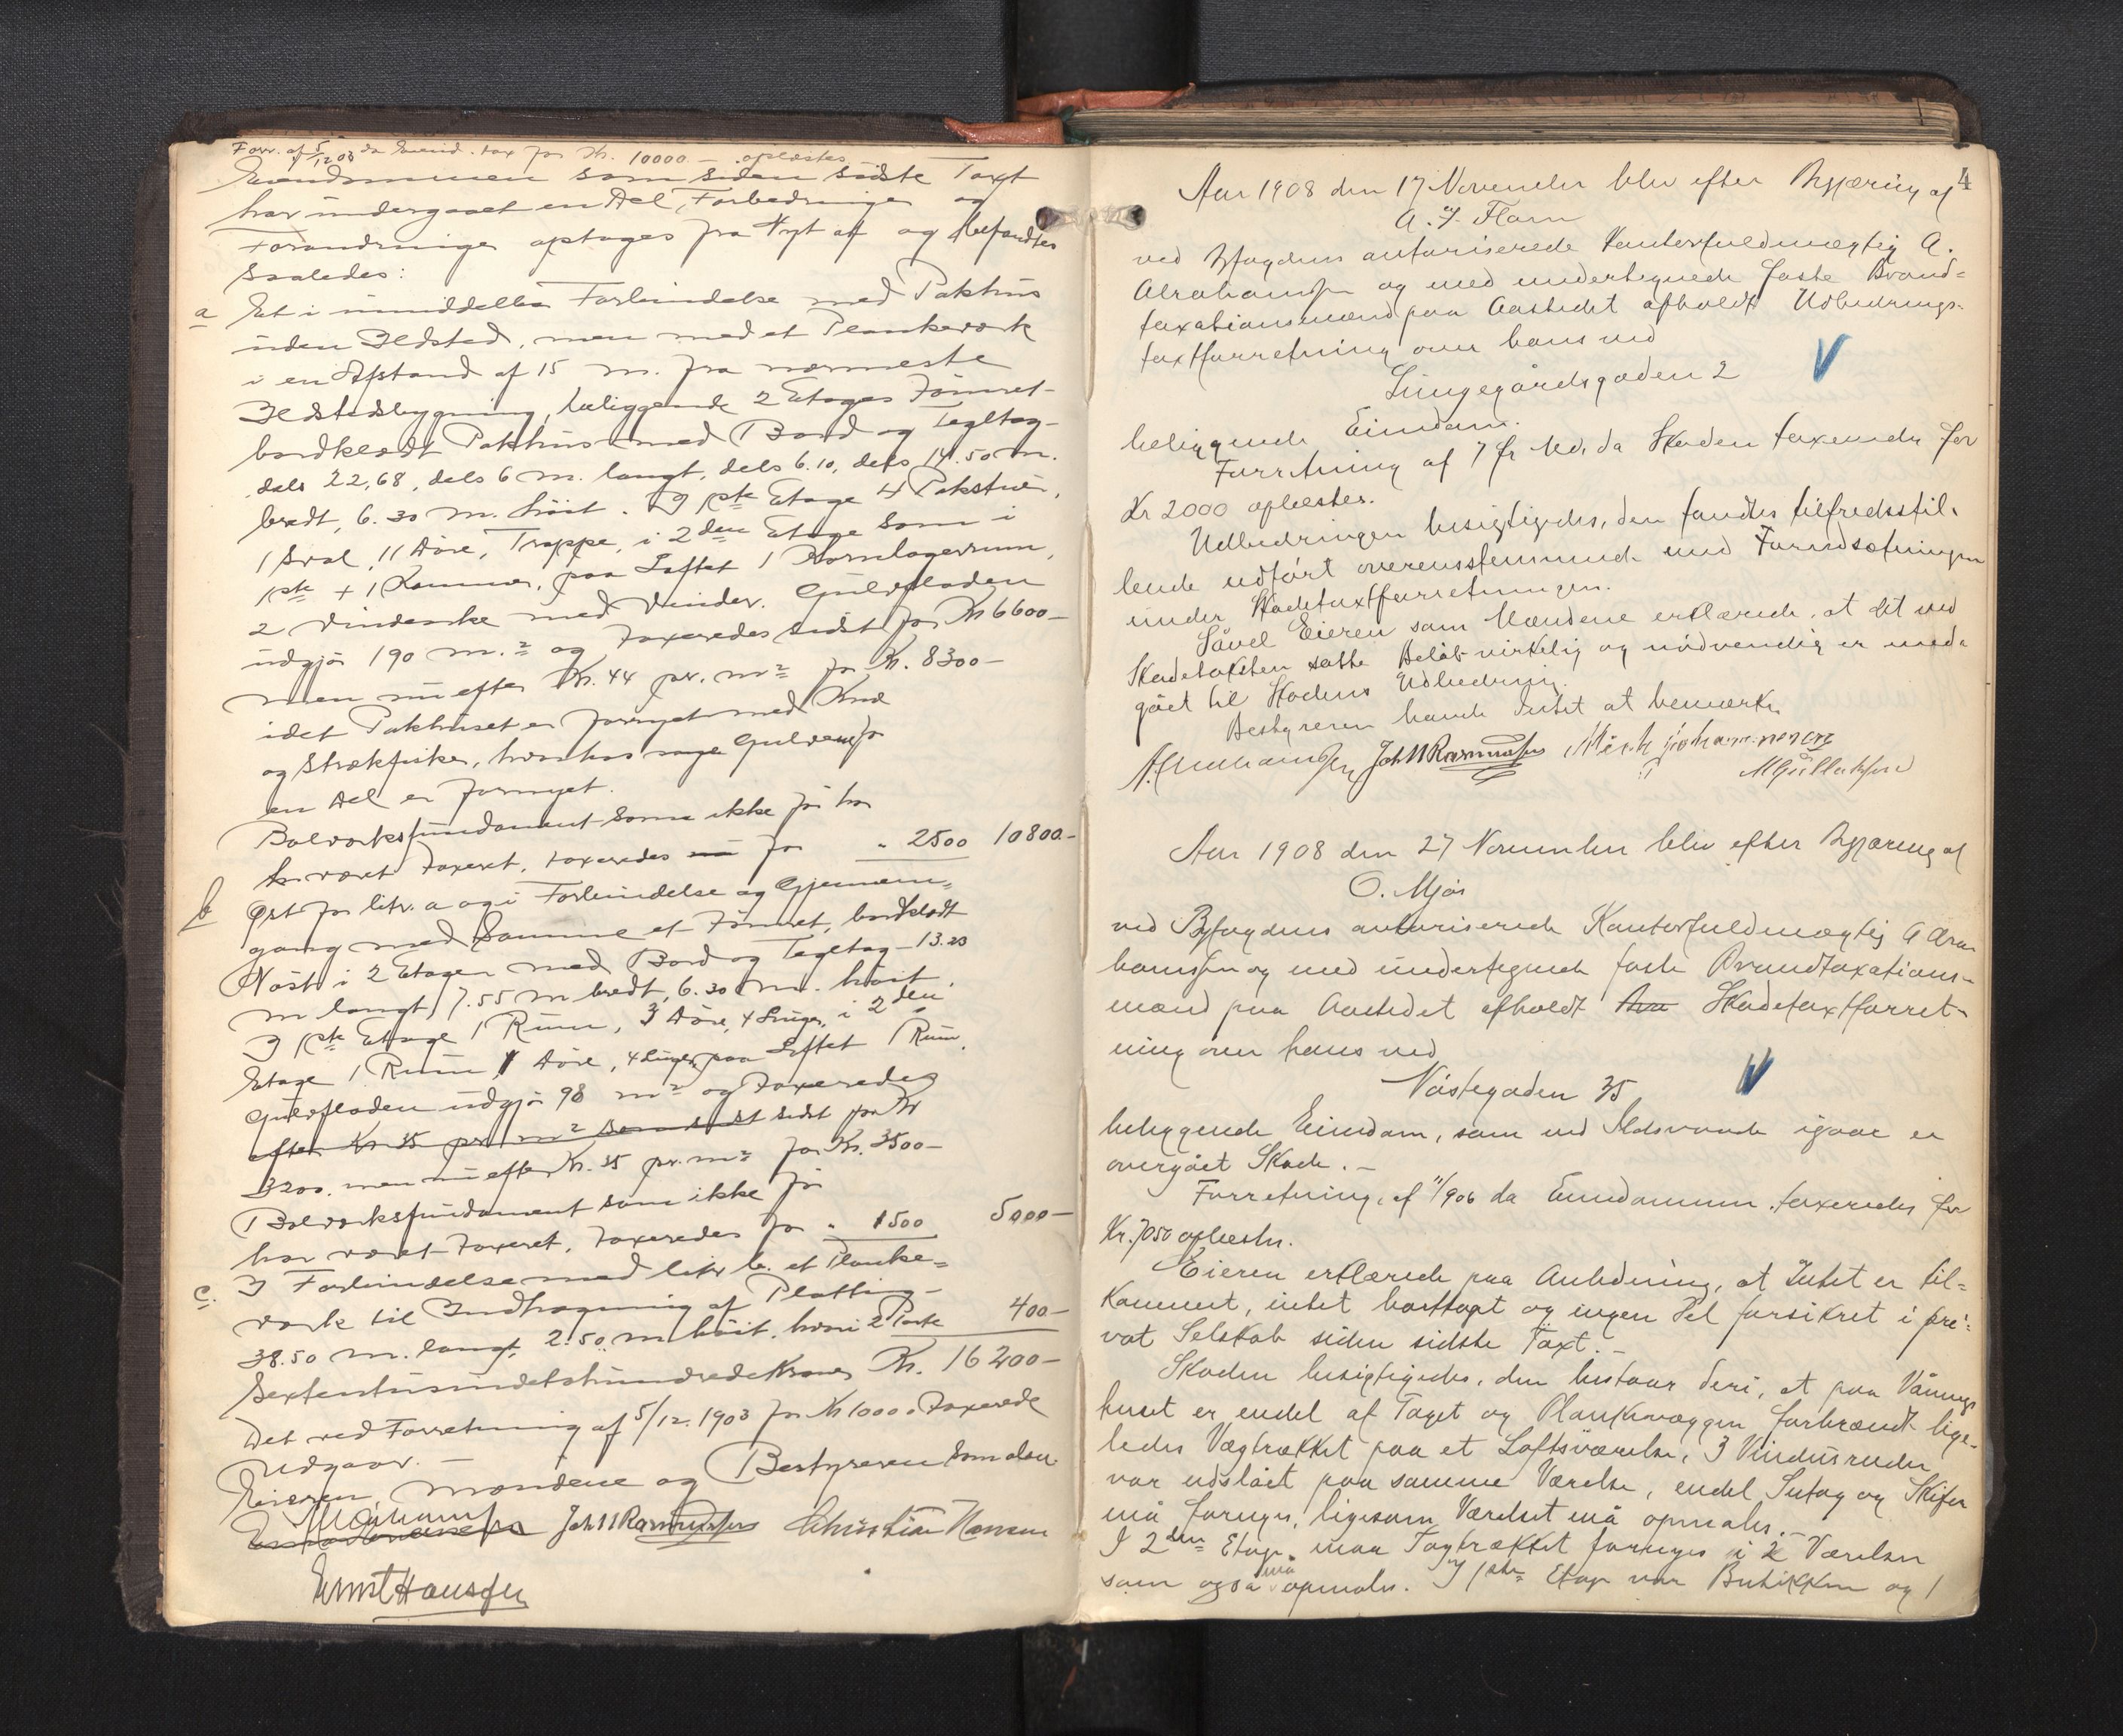 Forr. af 5/12 03 da Eiend. tax for Kr. 10000 – oplæstes
Eiendommen som siden sidste Taxt
har undergaaet en Del Forbedringer og
Forandringer optages fra Nyt af og befandtes
saaledes:
a Et i umiddelbar Forbindelse med Pakhus
uden Ildsted, men med et Plankeværk
i en Afstand af 15 m. fra nærmeste
Ildstedsbygning, beliggende 2 Etages Tømret
bordklædt Pakhus med Bord og Tegltag –
dels 22,68, dels 6 m. langt, dels 6.10, dels 14.50 m.
bredt, 6.30 m. høit. I 1ste Etage 4 Pakstuer,
1 Sval, 11 Døre, Trappe, i 2den Etage som i
1ste + 1 Kammer, paa Loftet 1 Kornlagerrum,
2 Vindearke med Vinder. Gulvfladen
udgjør 190 m.2 og taxeredes sidst for Kr 6600 –
men nu efter Kr. 44 pr. m2 for Kr. 8300 –
idet Pakhuset er fornyet med Knæ
og Strækfisker, hvorhos nye Gulve
en Del er fornyet.
Bolværksfundament som ikke før har
været taxeret, taxeredes for " 2500 10800 –
b Øst for litr. a og i Forbindelse og Gjennem=
gang med samme et Tømret, bordklædt
Nøst i 2 Etager med Bord og Tegltag – 13.20
m langt, 7.55 m bredt, 6.30 m. høit.
I 1ste Etage 1 Rum, 3 Døre, 4 Luger, i 2den
Etage 1 Rum, 1 Døre, 4 Luger, paa Loftet 1 Rum.
Gulvfladen udgjør 98 m2 og taxeredes
efter Kr 35 pr m2 som sidst sidst for Kr
3200. men nu efter Kr. 35 pr. m2 for Kr. 3500 –
Bolværksfundament som ikke før
har været taxeret, taxeredes for " 1500 5000 –
c. I Forbindelse med litr b. et Planke=
værk til Indhegning af Platting –
38.50 m. langt, 2.50 m høit, hvori 2 Porte 400 –
Sextentusindetohundrede Kroner Kr. 16200 –
Det ved Forretning af 5/12. 1903 for Kr 10000 taxerede
udgaar. –
Eieren, Mændene og Bestyreren som oben.
AAbrahamsen Joh N Rasmussen Christian Hansen
Ernst Hansen
4
Aar 1908 den 17 November blev efter Begjæring af
A. J. Flam
ved Byfogdens autoriserede Kontorfuldmægtig A.
Abrahamsen og med undertegnede faste Brand=
taxationsmænd paa Aastedet afholdt Udbedrings-
taxtforretning over hans ved
Lungegårdsgaden 2
beliggende Eiendom.
Forretning af 7 ds. da Skaden taxeredes for
Kr 2000 oplæstes.
Udbedringen besigtigedes, den fandtes tilfredsstil-
lende udført overensstemmende med Forudsætningen
under Skadetaxtforretningen.
Såvel Eieren som Mændene erklærede, at det ved
Skadetaksten satte Beløb virkelig og nødvendig er med-
gået til Skadens Udbedring.
Bestyreren havde Intet at bemærke.
A. Abrahamsen Joh N Rasmussen Mich Johannesen
M Gullaksen
Aar 1908 den 27 November blev efter Begjæring af
O. Mjøs
ved Byfogdens autoriserede Kontorfuldmægtig A Abra
hamsen og med undertegnede faste Brandtaxations-
mænd paa Aastedet afholdt Skadetaxtforret-
ning over hans ved
Nøstegaden 35
beliggende Eiendom, som ved Ildsvaade igaar er
overgået Skade. –
Forretning af 11/906 da Eiendommen taxeredes for
Kr. 7050 oplæstes.
Eieren erklærede paa Anledning, at Intet er til=
kommet, intet borttaget og ingen Del forsikret i pri=
vat Selskab siden sidste Taxt. –
Skaden besigtigedes, den bestaar deri, at paa Vånings
huset er endel af Taget og Plankevæggen forbrændt lige-
ledes Vægtrækket paa et Loftsværelse, 3 Vindusruder
var udslået paa samme Værelse, endel Sutag og Skifer
må fornyes, ligesom Værelset må opmales. –
I 2den Etage maa Tagtrækket fornyes i 2 Værelser
som også må opmales. I 1ste Etage var Butikken og 1